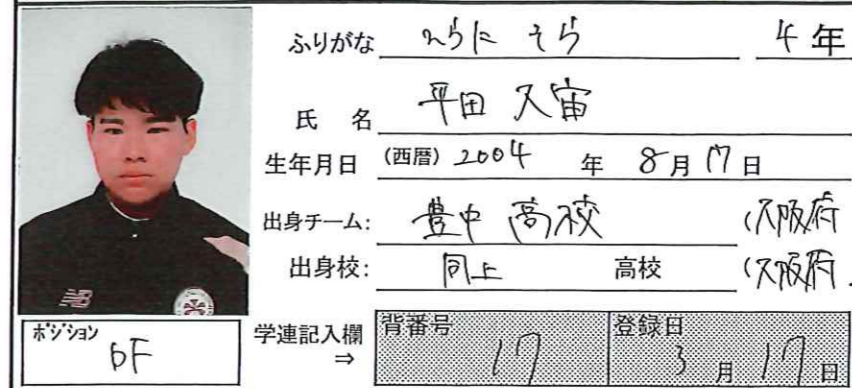 ふりがな ひらた そら 4年
氏名 平田 大宙
生年月日 (西暦) 2004 年 8月 17日
出身チーム: 豊中高校 (大阪府
出身校: 同上 高校 (大阪府
ポジション DF
学連記入欄 ⇒ 背番号 17 登録日 3月17日